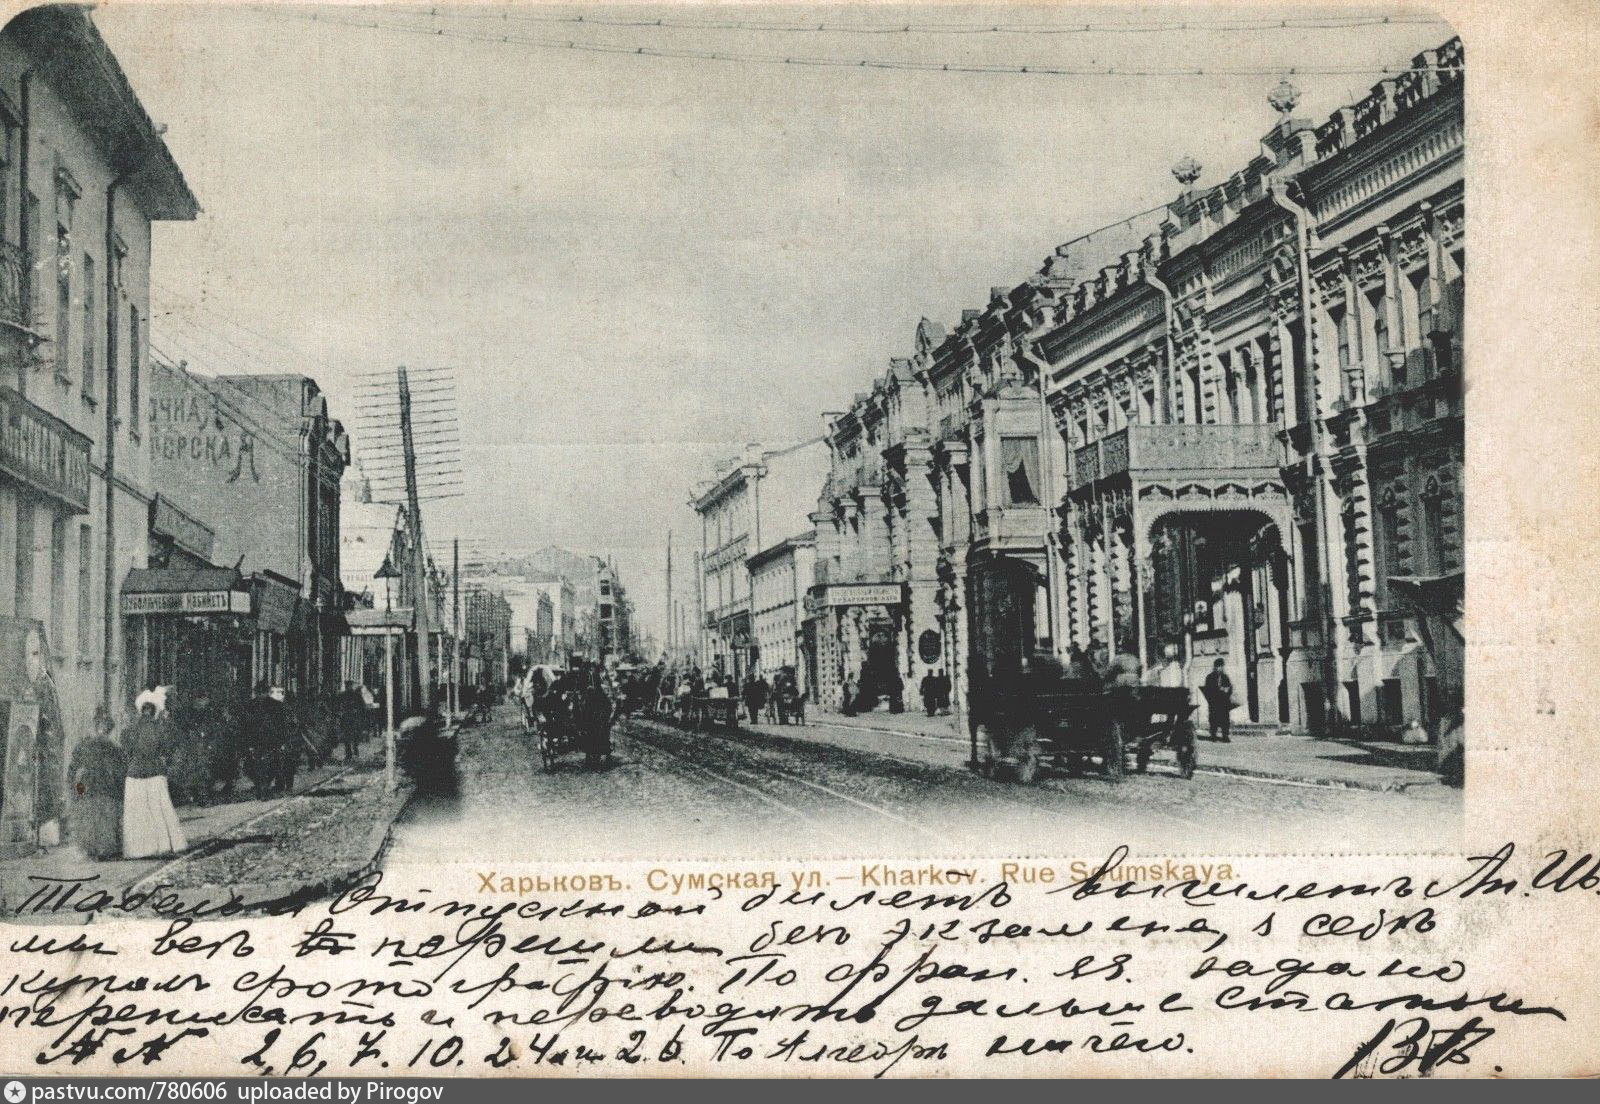 ОЧНАЯ
ЗУБОЛѢЧЕБНЫЙ КАБИНЕТЪ
Харьковъ. Сумская ул. — Kharkov. Rue Soumskaya.
Табель и Отпускной билетъ вышлетъ Ан. Ив.
мы всѣ перешли безъ экзамена, я себѣ
купилъ фотографію. По фран. яз. задано
переписать и переводить дальше статьи
№№ 2, 6, 7. 10. 24 и 26. По Алгебрѣ ничего.
pastvu.com/780606 uploaded by Pirogov